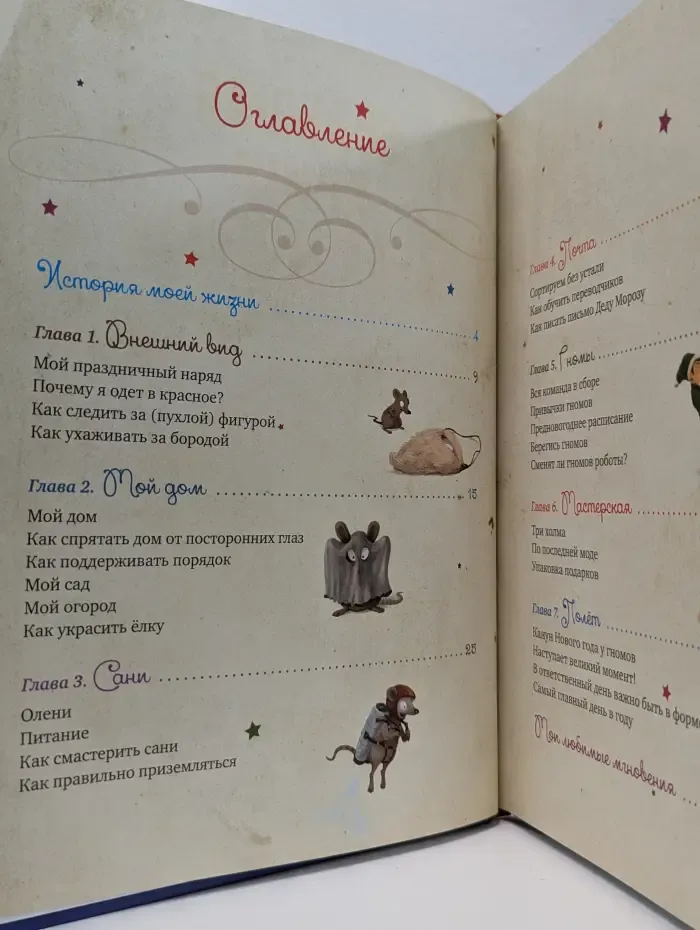 Оглавление
История моей жизни ........ 4
Глава 1. Внешний вид ........ 9
Мой праздничный наряд
Почему я одет в красное?
Как следить за (пухлой) фигурой
Как ухаживать за бородой
Глава 2. Мой дом ........ 15
Мой дом
Как спрятать дом от посторонних глаз
Как поддерживать порядок
Мой сад
Мой огород
Как украсить ёлку
Глава 3. Сани ........ 25
Олени
Питание
Как смастерить сани
Как правильно приземляться
Глава 4. Почта ........
Сортируем без устали
Как обучить переводчиков
Как писать письмо Деду Морозу
Глава 5. Гномы ........
Вся команда в сборе
Привычки гномов
Предновогоднее расписание
Берегись гномов
Сменят ли гномов роботы?
Глава 6. Мастерская ........
Три холма
По последней моде
Упаковка подарков
Глава 7. Полёт ........
Канун Нового года у гномов
Наступает великий момент!
В ответственный день важно быть в форме
Самый главный день в году
Мои любимые мгновения ...